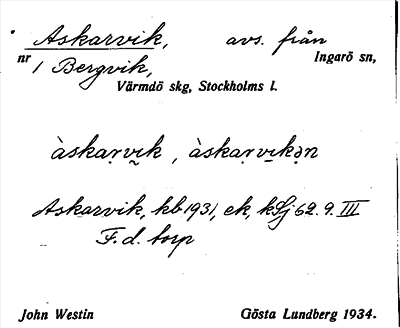 Askarvik, avs. från
nr 1 Bergvik, Ingarö sn,
Värmdö skg, Stockholms l.
àskạrvị̃k, àskạrvịkə̣n
Askarvik, kb 1931, ek, kSj 62. 9. III
F. d. torp
John Westin Gösta Lundberg 1934.